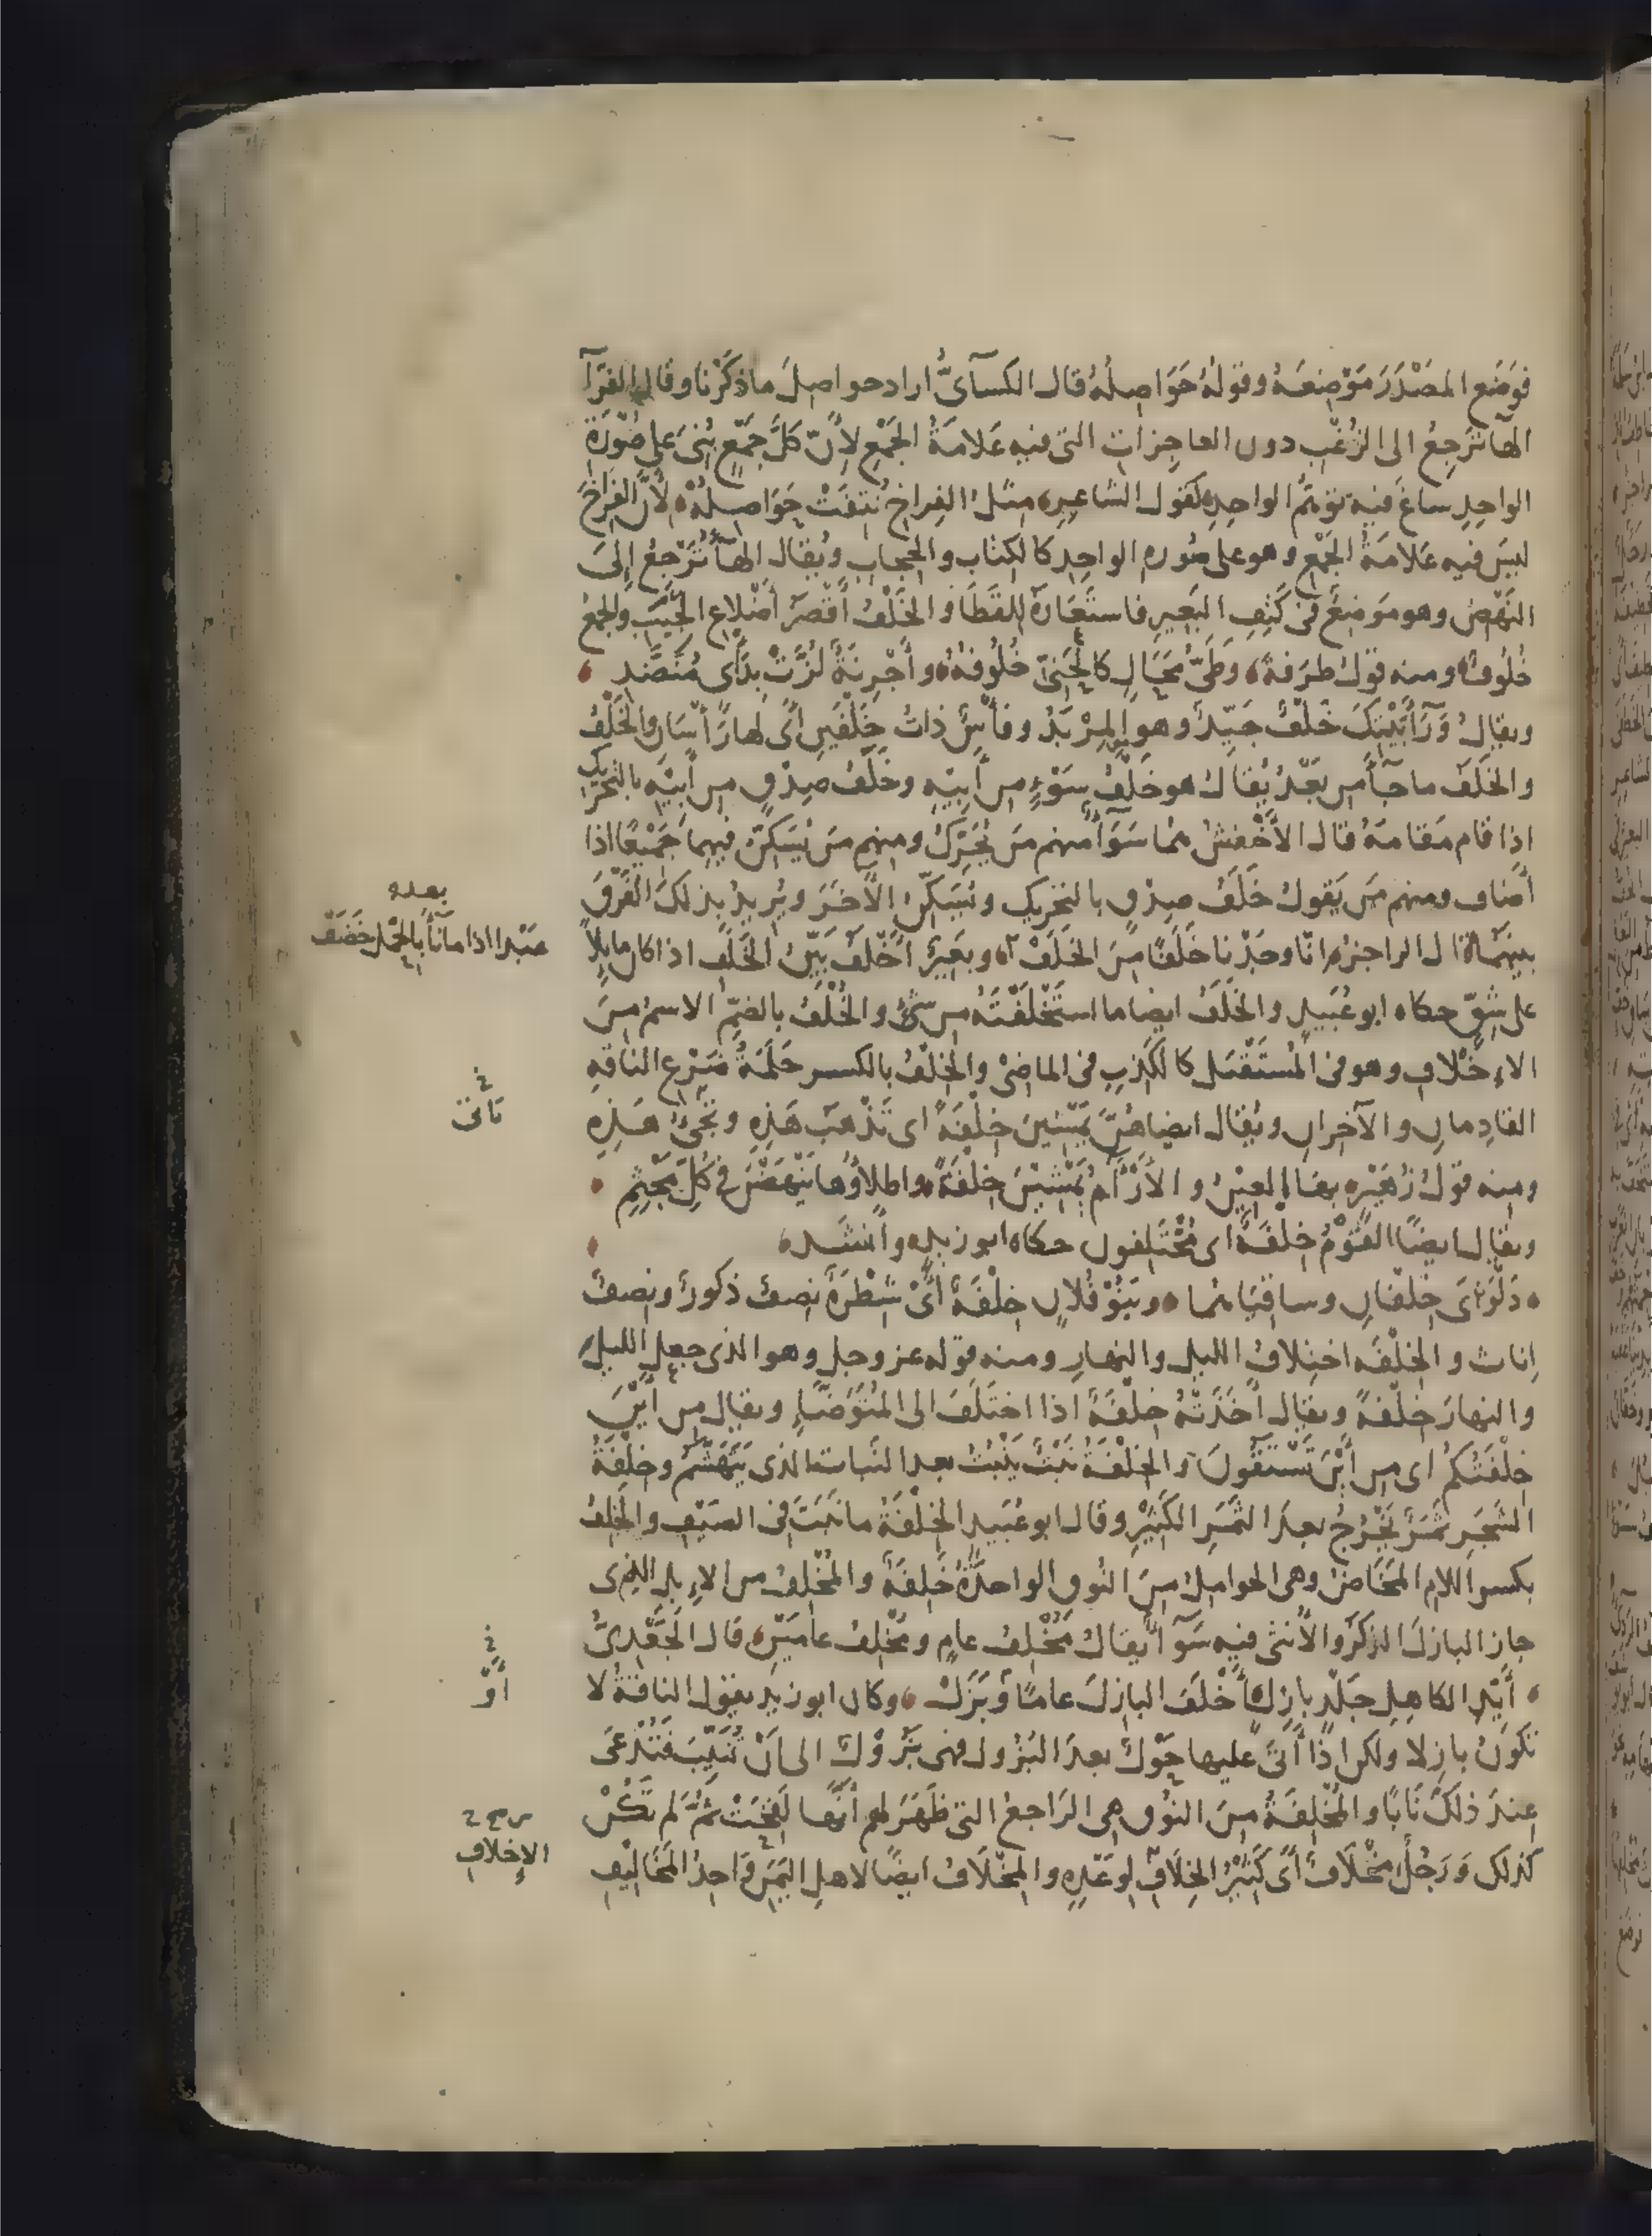 فوَضَع المصْدَرَ مَوْضِعَهُ وقولُهُ حَوَاصِلُهْ قال الكسآئىُّ اراد حواصِلَ ما ذكَرْنا وقال الفرّآ
الهآ تَرجِعُ الى الزُغْبِ دون العاجِزاتِ التى فيهِ عَلامَةُ الجَمْعِ لأنّ كلَّ جَمْعٍ بُنِىَ على صُوْرَةِ
الواحِدِ ساغَ فيهِ تَوَهُّمُ الواحِدِ كقول الشاعِرِ مِثل الفِراخِ نُتِفَتْ حَوَاصِلُهْ لأنَّ الفِراخَ
ليسَ فيه عَلامَةُ الجَمْعِ وهو على صُورهِ الواحِدِ كالكِتابِ والحِجابِ ويُقال الهآءُ تَرْجعُ إلَى
النَهْضِ وهو مَوضِعٌ فى كَتِفِ البَعِيرِ فاستَعَارهُ للقَطَا والخَلْفُ أقْصَرُ أضْلاعِ الجَنْبِ والجمْعُ
خُلُوفٌ ومنه قولُ طَرَفةَ وَطَىُّ مَحَالٍ كالحَنِىّ خُلُوفُهُ وأَجْرِنَةٌ لُزَّتْ بِدَأىٍ مُنَضَّدِ
ويقالُ وَرَآءَ بَيْتِكَ خَلْفٌ جَيّدٌ وهو المِرْبَدُ وفأسٌ ذاتُ خَلْفَينِ أىْ لها رَأْسَانِ والخَلْفُ
والخَلَف ما جآءَ من بَعْدُ يُقالُ هو خَلْفُ سَوْءٍ من أَبِيْهِ وخَلَفُ صِدْقٍ من أَبيْهِ بالتحْرِيكِ
اذا قام مَقامَهُ قال الأَخْفشُ هما سَوَآءٌ منهم مَن يُحَرّكُ ومنهم مَن يُسَكِّنُ فيهما جَمِيْعًا اذا
أضاف ومنهم مَن يَقولُ خَلَفُ صِدْقٍ بالتحْرِيكِ ويُسَكّنُ الآخَرَ ويُرِيدُ بذلكَ الفَرْقَ
بينهما قال الراجزُ إنّا وَجَدْنا خَلَفًا مِنَ الخَلَفْ وبَعِيرٌ أخْلَفُ بَيّنُ الخَلَفِ اذا كان مايِلًا
على شِقٍّ حكاه ابو عُبَيدٍ والخَلَفُ ايضا ما استَخْلَفْتَهُ من شئٍ والخُلْفُ بالضمِّ الاسمُ مِنَ
الإخْلافِ وهو فى المُستَقْبَلِ كالكَذِبِ فى الماضِىْ والخِلْفُ بالكسر حَلَمَةُ ضَرْعِ الناقهِ
القادِمانِ والآخِرانِ ويُقال ايضا هُنَّ يَمْشِينَ خِلْفَةً اى تَذْهَبُ هَذِهِ وتَجِئُ هَذِهِ
ومنه قولُ زُهَيْرٍ بها العِيْنُ والأَرْآمُ يَمْشِيْنَ خِلْفَةً واطلاؤُها يَنْهَضْنَ فى كُلِّ مَجْثِمِ
ويقال ايضًا القَوْمُ خِلْفَةٌ اى مُخْتَلِفون حكاه ابو زيدٍ وأنشَد
دَلْوَاىَ خِلْفانِ وساقِيَاهُما وبَنُوْ فُلانٍ خِلْفَةٌ أىْ شِطْرَةٌ نِصفٌ ذكورٌ ونِصفٌ
إناث والخِلْفَه اختِلافُ الليلِ والنهارِ ومنه قوله عز وجل وهو الذى جعل الليلَ
والنهارَ خِلْفةً ويقال أخَذَتْهُ خِلْفَةٌ اذا اختَلَفَ الى المُتَوَضَّأِ ويقال من أَيْنَ
خِلْفَتُكمُ اى من أَيْنَ تَسْتَقُونَ والخِلْفَةُ نَبْتٌ يَنْبُتُ بعد النَباتِ الذى يَتَهَشَّمُ وخِلْفَةُ
الشَجَرِ ثَمَرٌ يَخْرُجُ بعدَ الثَمَرِ الكَثِيْرِ وقال ابو عُبَيدٍ الخِلْفَةُ ما نَبَتَ فى الصَيْفِ والخَلِفُ
بكسر اللام المَخَاضُ وهى الحواملُ مِنَ النُوقِ الواحدَةُ خَلِفَةٌ والمُخْلِفُ من الإبلِ الذى
جاز البازِلَ الذكَرُ والأُنثى فيه سَوَآءٌ يقالُ مُخْلِفُ عامٍ ومُخْلِفُ عامَيْنِ قال الجَعْدِىُّ
أَيِّدِ الكاهِلِ جَلْدٍ بازِلٍ أَخْلَفَ البازِلَ عامًا أوْ بَزَلْ وكان ابو زيدٍ يقول الناقةُ لا
تكونُ بازِلا ولكن اذا أتَى عليها حَوْلٌ بعدَ البُزُولِ فهى بَزُوْلٌ الى أَنْ تُنَيِّبَ فَتُدْعَى
عِندَ ذلكَ نَابًا والمُخْلِفَةُ مِنَ النوْقِ هى الرَاجِعُ التى ظَهَرَ لهم أنَّها لَقِحَتْ ثُمَّ لم تَكُنْ
كذلك وَرَجُلٌ مِخْلَافٌ أىْ كَثِيْرُ الخِلَافِ لِوَعْدِهِ والمِخْلَافُ ايضًا لاهلِ اليَمَنِ وَاحِدُ المَخَالِيْفِ
بعده
عَبْدا اذا ما نآءَ بالحِمْلِ خَضَفْ
أوْ
الإخْلافِ